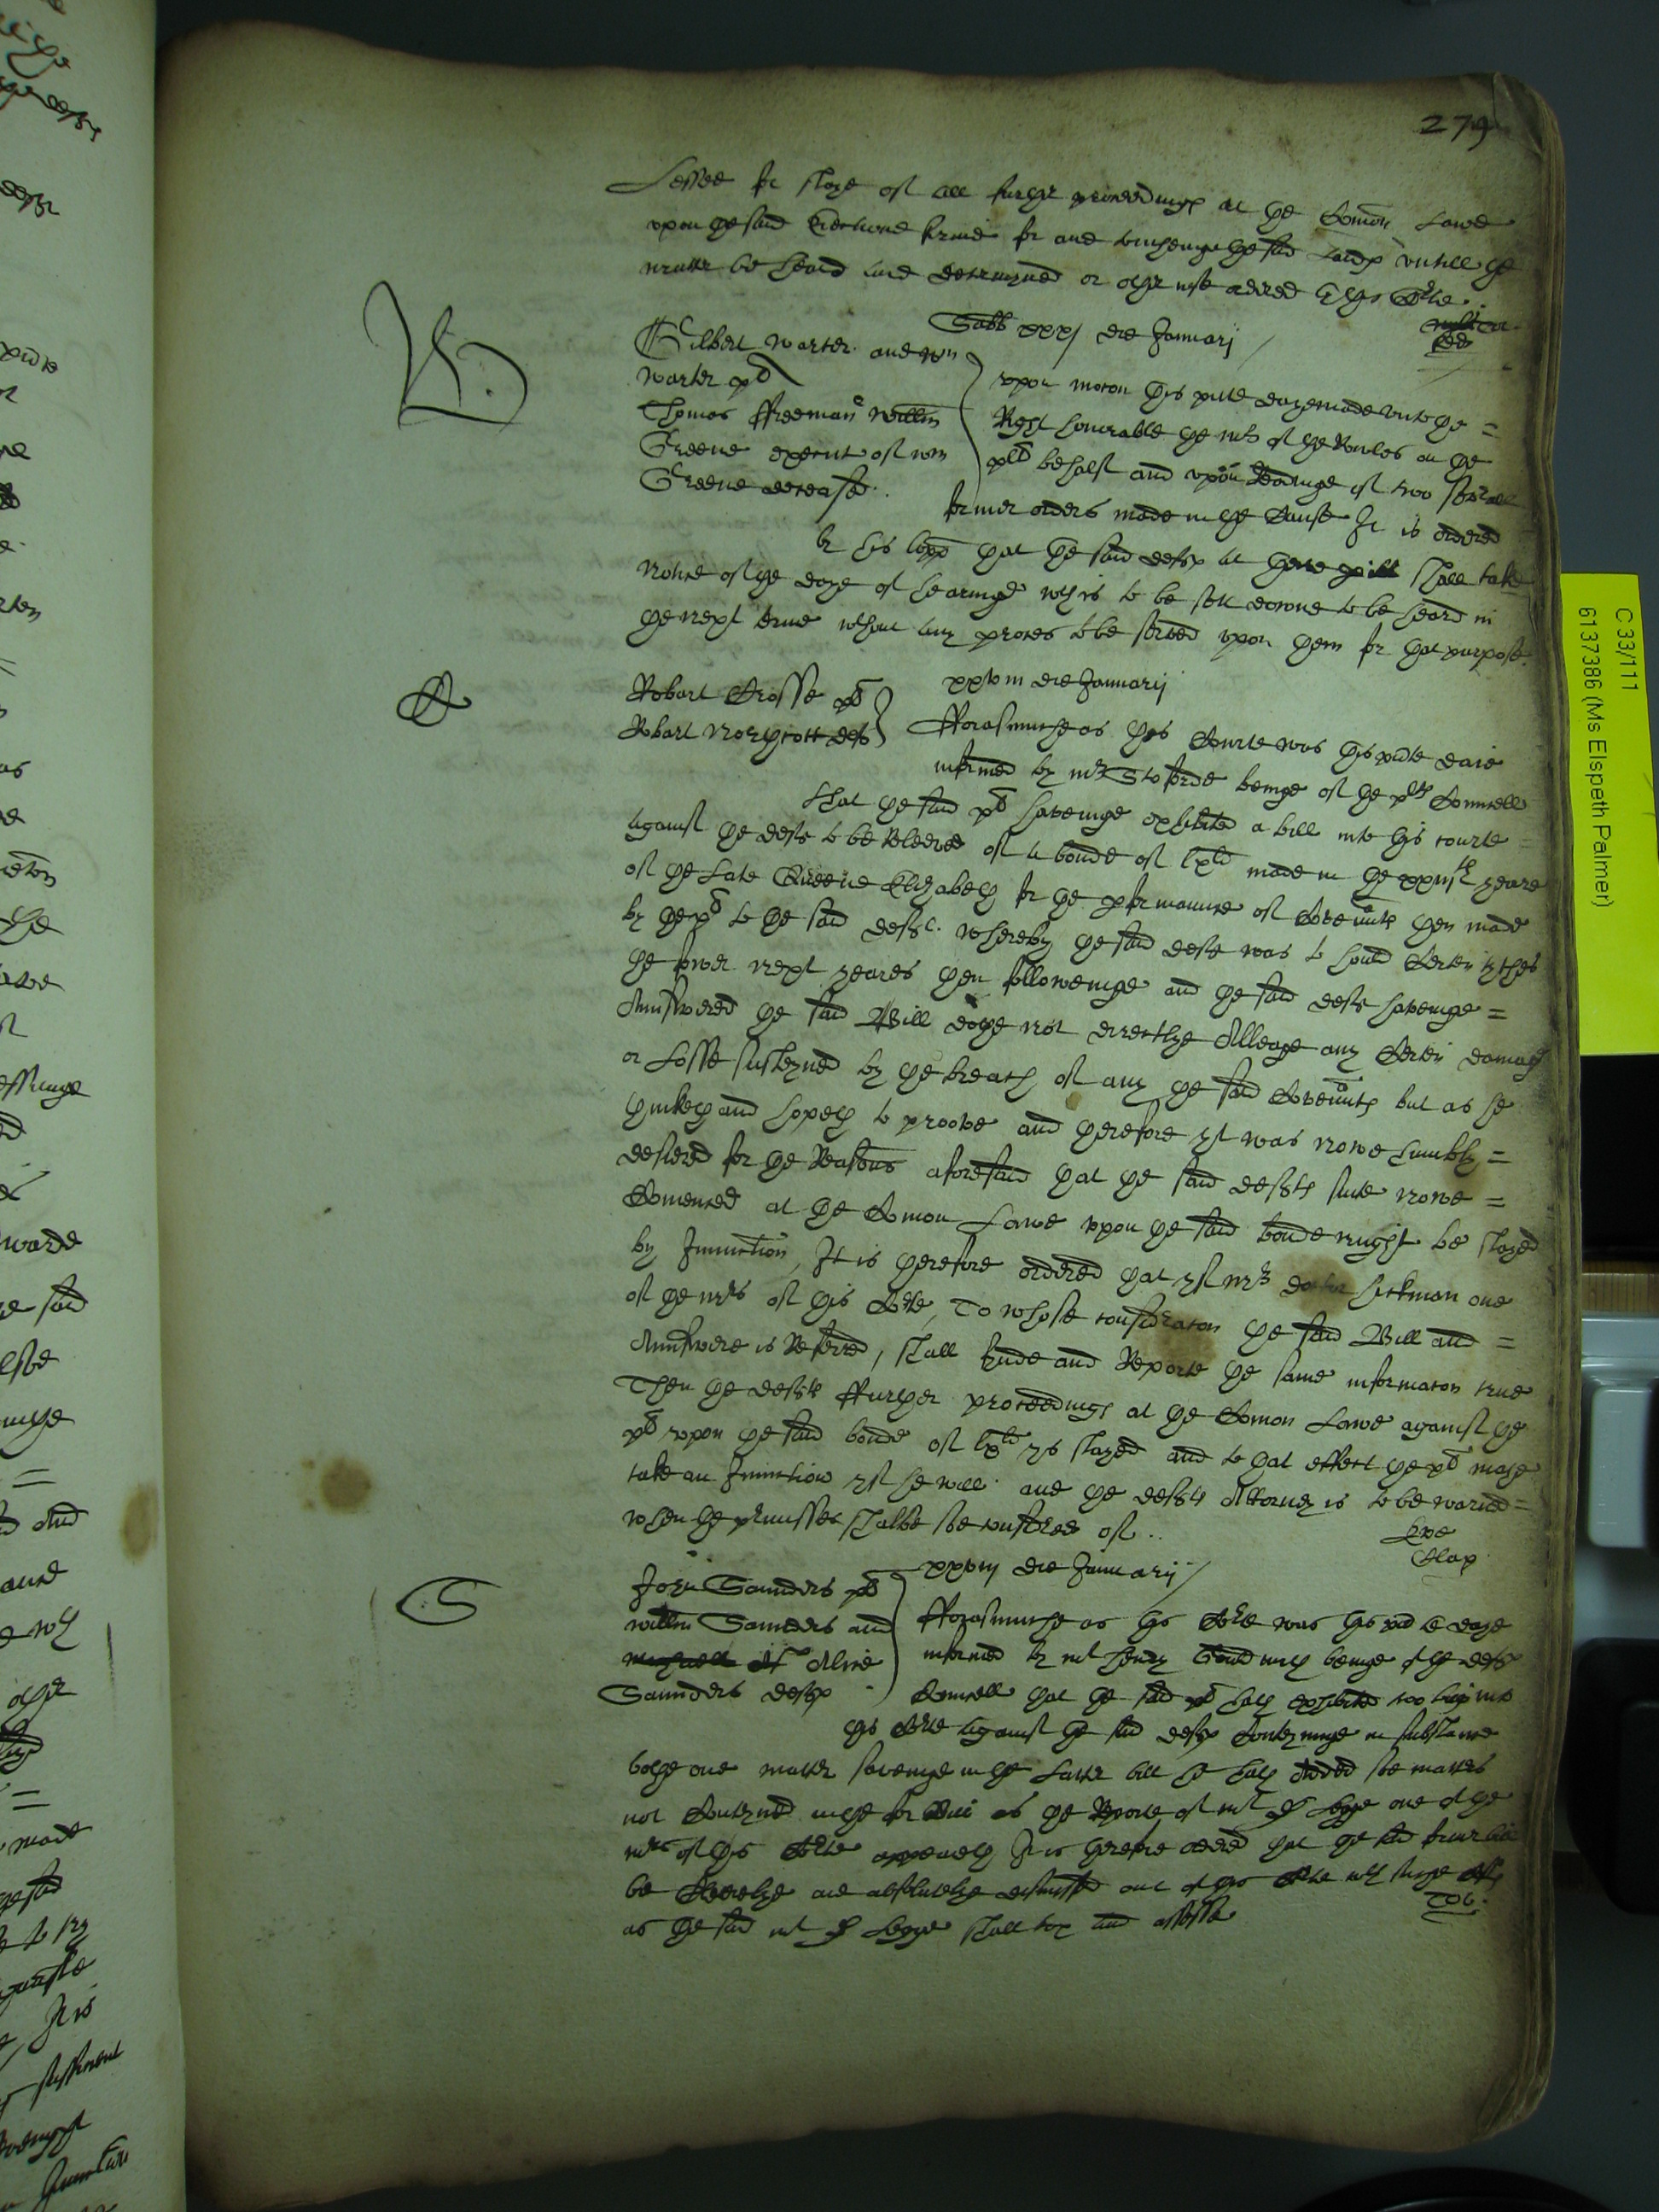 279
Lessee for staye of all further proceedings at the Comon Lawe
upon the said Eiectione firme for and concerninge the said Lands untill the
matter be heard and determyned or otherwise ordered by this Courte
Sabb xxxj die Januarij
W
Gilbert Warter and Wm
Warter plt
Thomas Freeman Willm
Greene execut of Wm
Greene deceased
upon motion this pnte daye made unto the =
Right honorable the mr of the Roules on the
plts behalf and upon Readinge of two severall
former orders made in the Cause It is ordered
by his lopp that the said defts at there perill shall take
notice of the daye of hearinge wch is to be sett downe to be heard in
the next terme wthout any proces to be served upon them for that purpose.
C
Robart Crosse plt
Robart Northcott deft
xxviij die Januarij
Forasmuche as this Courte was this pnte daie
informed by mr Stoforde beinge of the plts Counsell
that the said plt haveinge exhibited a bill into this courte =
against the deft to be Releeved of a bonde of lxli made in the yeare
of the late Queene Elizabeth for the pformaunce of Covenants then made
by the plt to the said deft. whereby the said deft was to hould Certen tythes
the fower next yeares then followeinge and the said deft haveinge =
Aunswered the said Bill dothe not directlye Alleage any Certen damage
or Losse susteyned by the breach of any the said Covenants but as he
thinketh and hopeth to proove and therefore yt was nowe humbly =
desiered for the Reasons aforesaid that the said defts suite nowe =
Comenced at the Comon Lawe uppon the said bonde might be stayed
by Iniunction, It is therefore ordered that yf mr doctor Hickman one
of the mrs of this Courte, To whose consideracon the said Bill and =
Aunswere is Referred, shall finde and Reporte the same informacon true
Then the defts Further proceedings at the Comon Lawe against the
plt uppon the said bonde of lxli ys stayed and to that effect the plt maye
take an Iniunction yf he will. and the defts Attorney is to be warned =
when the premisses shalbe so considered of ..
S
John Saunders plt
Willm Saunders and
Alice
Saunders defts
xxviij die Januarij
Forasmuche as this Courte was this pnte daye
informed by mr Henry beinge of the defts
Counsell that the said plt hath exhibited two bills into
this Courte against the said defts Conteyninge in substance
bothe one matter saveinge in the latter bill he hath added some matters
not Conteyned in the former Bill as the Reporte of mr d Legge one of the
mrs of this Courte appeareth It is therefore ordered that the said former bill
be Cleerelye and absolutelye dismissed out of this Courte wth suche Costs
as the said mr d Legge shall tax and assesse
C 33/11
6137386 (Ms Elspeth Palmer)